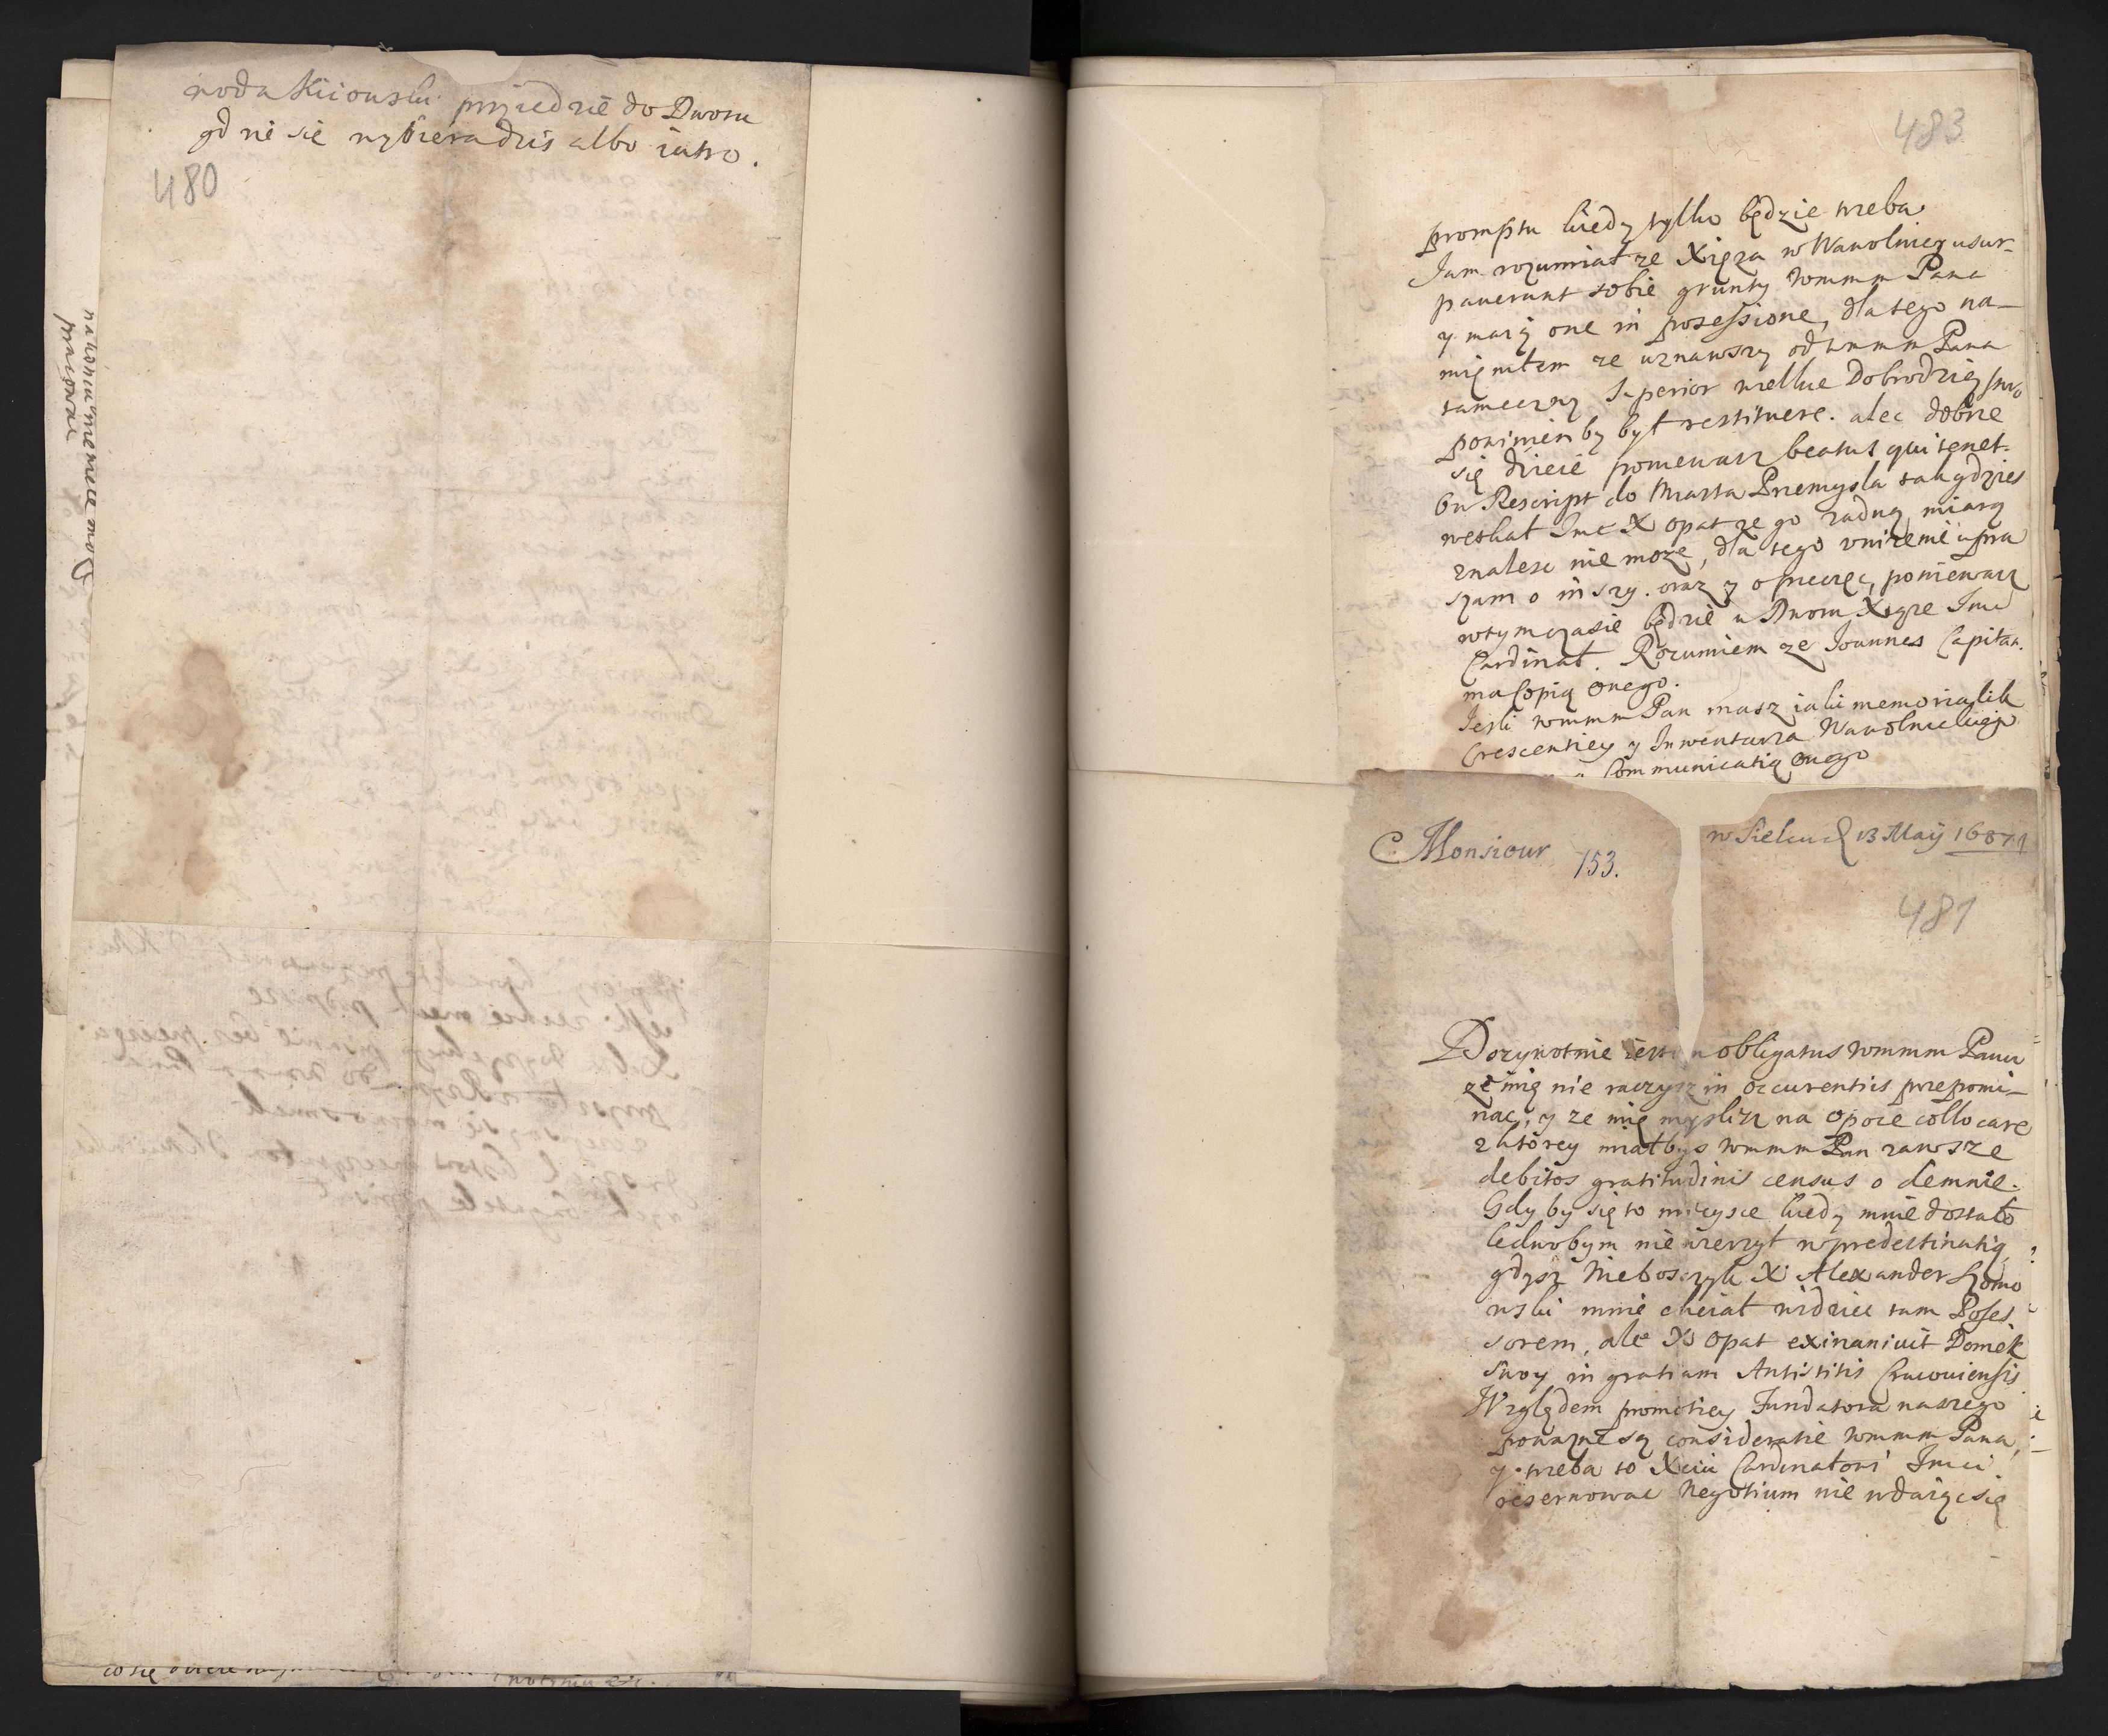 woda Kiiouski przyiedzie do Dworu
gdzie się wybiera dzis albo iutro.
480
483
promptu kiedy tylko będzie trzeba.
Jam rozumiał ze Xięza w Wawolnicy usur-
pauerunt sobie grunty wmmm Pana
y maią one in possessione, dla tego na-
mieniłem ze uznawszy od wmmm Pana
tameczny Superior wielkie Dobrodzieystwo
powinien by był restituere. alec dobrze
się dzieie poniewasz beatus qui tenet.
On Rescript do Miasta Przemysla tak gdzies
wetkał Imc X opat ze go zadną miarą
znalesc nie moze, dla tego unizenie upra
szam o inszy. oraz y o pieczęc, poniewasz
w tym czasie będzie u Dworu Xąże Imc
Cardinał. Rozumiem ze Joannes Capitan.
ma Copią onego.
Jesli wmmm Pan masz iaki memorialik
Crescentiey y Inwentarza Wawolnickiego
Communicatią onego
C Monsieur
153.
13 Maÿ 1687
481
Dozywotnie iestem obligatus wmmm Panu
ze mię nie raczysz in occurentiis przepomi-
nac, y ze mię myslisz na opoce collocare
z ktorey miałbys wmmm Pan zawsze
debitos gratitudinis census odemnie.
Gdy by się to mieysce kiedy mnie dostało
ledwobym nie wierzył w predestinatią
gdysz Nieboszczyk X Alexander
wski mnie chciał widziec tam Poses
sorem, ale X Opat exinaniuit Domek
swoy in gratiam Antistitis Cracouiensis
Względem promotiey Fundatora naszego
powazne są consideratie wmmm Pana,
y trzeba to Xciu Cardinałowi Imci
reserwowac Negotium nie wdaiąc się